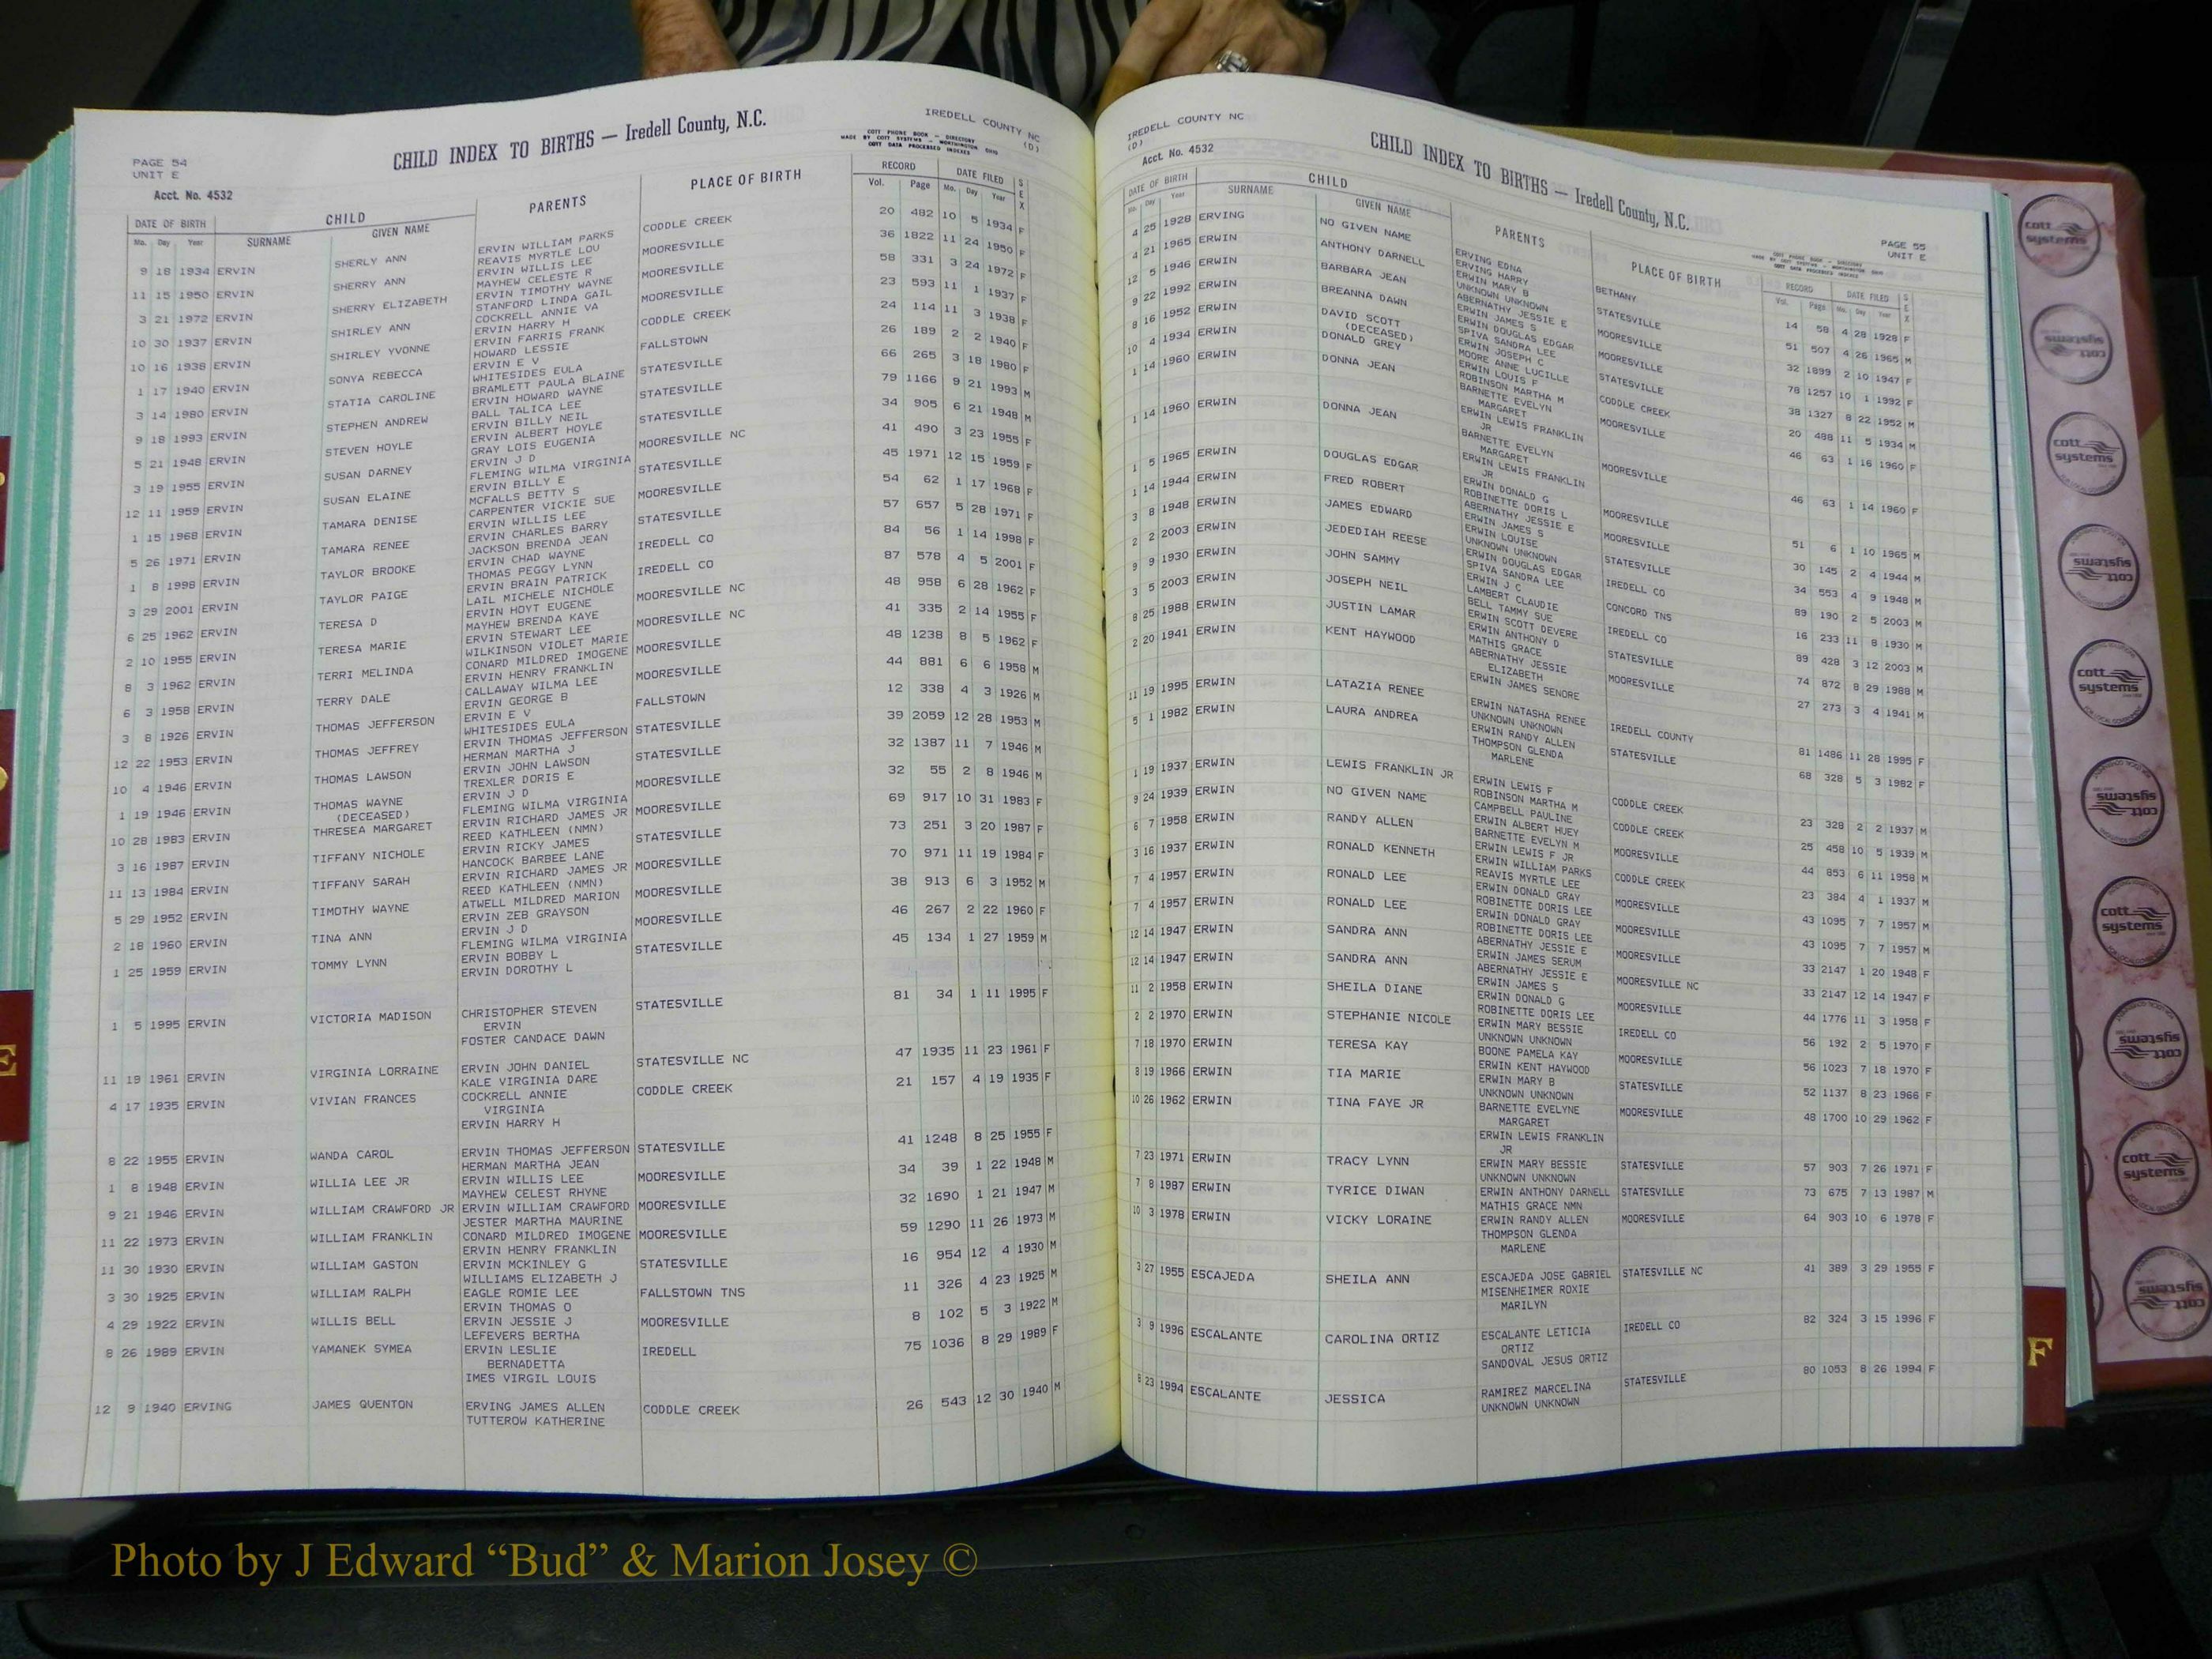 PAGE 54
UNIT E
Acct. No. 4532
CHILD INDEX TO BIRTHS — Iredell County, N.C.
IREDELL COUNTY NC
(D)
COTT PHONE BOOK — DIRECTORY
MADE BY COTT SYSTEMS — WORTHINGTON OHIO
COTT DATA PROCESSED INDEXES
DATE OF BIRTH CHILD PARENTS PLACE OF BIRTH RECORD DATE FILED SEX
Mo. Day Year SURNAME GIVEN NAME Vol. Page Mo. Day Year
9 18 1934 ERVIN SHERLY ANN ERVIN WILLIAM PARKS CODDLE CREEK 20 482 10 5 1934 F
REAVIS MYRTLE LOU
11 15 1950 ERVIN SHERRY ANN ERVIN WILLIS LEE MOORESVILLE 36 1822 11 24 1950 F
MAYHEW CELESTE R
3 21 1972 ERVIN SHERRY ELIZABETH ERVIN TIMOTHY WAYNE MOORESVILLE 58 331 3 24 1972 F
STANFORD LINDA GAIL
10 30 1937 ERVIN SHIRLEY ANN COCKRELL ANNIE VA MOORESVILLE 23 593 11 1 1937 F
ERVIN HARRY H
10 16 1938 ERVIN SHIRLEY YVONNE ERVIN FARRIS FRANK CODDLE CREEK 24 114 11 3 1938 F
HOWARD LESSIE
1 17 1940 ERVIN SONYA REBECCA ERVIN E V FALLSTOWN 26 189 2 2 1940 F
WHITESIDES EULA
3 14 1980 ERVIN STATIA CAROLINE BRAMLETT PAULA BLAINE STATESVILLE 66 265 3 18 1980 F
ERVIN HOWARD WAYNE
9 18 1993 ERVIN STEPHEN ANDREW BALL TALICA LEE STATESVILLE 79 1166 9 21 1993 M
ERVIN BILLY NEIL
5 21 1948 ERVIN STEVEN HOYLE ERVIN ALBERT HOYLE STATESVILLE 34 905 6 21 1948 M
GRAY LOIS EUGENIA
3 19 1955 ERVIN SUSAN DARNEY ERVIN J D MOORESVILLE NC 41 490 3 23 1955 F
FLEMING WILMA VIRGINIA
12 11 1959 ERVIN SUSAN ELAINE ERVIN BILLY E STATESVILLE 45 1971 12 15 1959 F
MCFALLS BETTY S
1 15 1968 ERVIN TAMARA DENISE CARPENTER VICKIE SUE MOORESVILLE 54 62 1 17 1968 F
ERVIN WILLIS LEE
5 26 1971 ERVIN TAMARA RENEE ERVIN CHARLES BARRY STATESVILLE 57 657 5 28 1971 F
JACKSON BRENDA JEAN
1 8 1998 ERVIN TAYLOR BROOKE ERVIN CHAD WAYNE IREDELL CO 84 56 1 14 1998 F
THOMAS PEGGY LYNN
3 29 2001 ERVIN TAYLOR PAIGE ERVIN BRAIN PATRICK IREDELL CO 87 578 4 5 2001 F
LAIL MICHELE NICHOLE
6 25 1962 ERVIN TERESA D ERVIN HOYT EUGENE MOORESVILLE NC 48 958 6 28 1962 F
MAYHEW BRENDA KAYE
2 10 1955 ERVIN TERESA MARIE ERVIN STEWART LEE MOORESVILLE NC 41 335 2 14 1955 F
WILKINSON VIOLET MARIE
8 3 1962 ERVIN TERRI MELINDA CONARD MILDRED IMOGENE MOORESVILLE 48 1238 8 5 1962 F
ERVIN HENRY FRANKLIN
6 3 1958 ERVIN TERRY DALE CALLAWAY WILMA LEE MOORESVILLE 44 881 6 6 1958 M
ERVIN GEORGE B
3 8 1926 ERVIN THOMAS JEFFERSON ERVIN E V FALLSTOWN 12 338 4 3 1926 M
WHITESIDES EULA
12 22 1953 ERVIN THOMAS JEFFREY ERVIN THOMAS JEFFERSON STATESVILLE 39 2059 12 28 1953 M
HERMAN MARTHA J
10 4 1946 ERVIN THOMAS LAWSON ERVIN JOHN LAWSON STATESVILLE 32 1387 11 7 1946 M
TREXLER DORIS E
1 19 1946 ERVIN THOMAS WAYNE ERVIN J D MOORESVILLE 32 55 2 8 1946 M
(DECEASED) FLEMING WILMA VIRGINIA
10 28 1983 ERVIN THRESEA MARGARET ERVIN RICHARD JAMES JR MOORESVILLE 69 917 10 31 1983 F
REED KATHLEEN (NMN)
3 16 1987 ERVIN TIFFANY NICHOLE ERVIN RICKY JAMES STATESVILLE 73 251 3 20 1987 F
HANCOCK BARBEE LANE
11 13 1984 ERVIN TIFFANY SARAH ERVIN RICHARD JAMES JR MOORESVILLE 70 971 11 19 1984 F
REED KATHLEEN (NMN)
5 29 1952 ERVIN TIMOTHY WAYNE ATWELL MILDRED MARION MOORESVILLE 38 913 6 3 1952 M
ERVIN ZEB GRAYSON
2 18 1960 ERVIN TINA ANN ERVIN J D MOORESVILLE 46 267 2 22 1960 F
FLEMING WILMA VIRGINIA
1 25 1959 ERVIN TOMMY LYNN ERVIN BOBBY L STATESVILLE 45 134 1 27 1959 M
ERVIN DOROTHY L
1 5 1995 ERVIN VICTORIA MADISON CHRISTOPHER STEVEN STATESVILLE 81 34 1 11 1995 F
ERVIN
FOSTER CANDACE DAWN
11 19 1961 ERVIN VIRGINIA LORRAINE ERVIN JOHN DANIEL STATESVILLE NC 47 1935 11 23 1961 F
KALE VIRGINIA DARE
4 17 1935 ERVIN VIVIAN FRANCES COCKRELL ANNIE CODDLE CREEK 21 157 4 19 1935 F
VIRGINIA
ERVIN HARRY H
8 22 1955 ERVIN WANDA CAROL ERVIN THOMAS JEFFERSON STATESVILLE 41 1248 8 25 1955 F
HERMAN MARTHA JEAN
1 8 1948 ERVIN WILLIA LEE JR ERVIN WILLIS LEE MOORESVILLE 34 39 1 22 1948 M
MAYHEW CELEST RHYNE
9 21 1946 ERVIN WILLIAM CRAWFORD JR ERVIN WILLIAM CRAWFORD MOORESVILLE 32 1690 1 21 1947 M
JESTER MARTHA MAURINE
11 22 1973 ERVIN WILLIAM FRANKLIN CONARD MILDRED IMOGENE MOORESVILLE 59 1290 11 26 1973 M
ERVIN HENRY FRANKLIN
11 30 1930 ERVIN WILLIAM GASTON ERVIN MCKINLEY G STATESVILLE 16 954 12 4 1930 M
WILLIAMS ELIZABETH J
3 30 1925 ERVIN WILLIAM RALPH EAGLE ROMIE LEE FALLSTOWN TNS 11 326 4 23 1925 M
ERVIN THOMAS O
4 29 1922 ERVIN WILLIS BELL ERVIN JESSIE J MOORESVILLE 8 102 5 3 1922 M
LEFEVERS BERTHA
8 26 1989 ERVIN YAMANEK SYMEA ERVIN LESLIE IREDELL 75 1036 8 29 1989 F
BERNADETTA
IMES VIRGIL LOUIS
12 9 1940 ERVING JAMES QUENTON ERVING JAMES ALLEN CODDLE CREEK 26 543 12 30 1940 M
TUTTEROW KATHERINE
IREDELL COUNTY NC
(D)
Acct. No. 4532
CHILD INDEX TO BIRTHS — Iredell County, N.C.
PAGE 55
UNIT E
COTT PHONE BOOK — DIRECTORY
MADE BY COTT SYSTEMS — WORTHINGTON OHIO
COTT DATA PROCESSED INDEXES
DATE OF BIRTH CHILD PARENTS PLACE OF BIRTH RECORD DATE FILED SEX
Mo. Day Year SURNAME GIVEN NAME Vol. Page Mo. Day Year
4 25 1928 ERVING NO GIVEN NAME ERVING EDNA BETHANY 14 58 4 28 1928 F
ERVING HARRY
4 21 1965 ERWIN ANTHONY DARNELL ERWIN MARY B STATESVILLE 51 507 4 26 1965 M
UNKNOWN UNKNOWN
12 5 1946 ERWIN BARBARA JEAN ABERNATHY JESSIE E MOORESVILLE 32 1899 2 10 1947 F
ERWIN JAMES S
9 22 1992 ERWIN BREANNA DAWN ERWIN DOUGLAS EDGAR MOORESVILLE 78 1257 10 1 1992 F
SPIVA SANDRA LEE
8 16 1952 ERWIN DAVID SCOTT ERWIN JOSEPH C STATESVILLE 38 1327 8 22 1952 M
(DECEASED) MOORE ANNE LUCILLE
10 4 1934 ERWIN DONALD GREY ERWIN LOUIS F CODDLE CREEK 20 488 11 5 1934 M
ROBINSON MARTHA M
1 14 1960 ERWIN DONNA JEAN BARNETTE EVELYN MOORESVILLE 46 63 1 16 1960 F
MARGARET
ERWIN LEWIS FRANKLIN
JR
1 14 1960 ERWIN DONNA JEAN BARNETTE EVELYN MOORESVILLE 46 63 1 14 1960 F
MARGARET
ERWIN LEWIS FRANKLIN
JR
1 5 1965 ERWIN DOUGLAS EDGAR ERWIN DONALD G MOORESVILLE 51 6 1 10 1965 M
ROBINETTE DORIS L
1 14 1944 ERWIN FRED ROBERT ABERNATHY JESSIE E MOORESVILLE 30 145 2 4 1944 M
ERWIN JAMES S
3 8 1948 ERWIN JAMES EDWARD ERWIN LOUISE STATESVILLE 34 553 4 9 1948 M
UNKNOWN UNKNOWN
2 2 2003 ERWIN JEDEDIAH REESE ERWIN DOUGLAS EDGAR IREDELL CO 89 190 2 5 2003 M
SPIVA SANDRA LEE
9 9 1930 ERWIN JOHN SAMMY ERWIN J C CONCORD TNS 16 233 11 8 1930 M
LAMBERT CLAUDIE
3 5 2003 ERWIN JOSEPH NEIL BELL TAMMY SUE IREDELL CO 89 428 3 12 2003 M
ERWIN SCOTT DEVERE
8 25 1988 ERWIN JUSTIN LAMAR ERWIN ANTHONY D STATESVILLE 74 872 8 29 1988 M
MATHIS GRACE
2 20 1941 ERWIN KENT HAYWOOD ABERNATHY JESSIE MOORESVILLE 27 273 3 4 1941 M
ELIZABETH
ERWIN JAMES SENORE
11 19 1995 ERWIN LATAZIA RENEE ERWIN NATASHA RENEE IREDELL COUNTY 81 1486 11 28 1995 F
UNKNOWN UNKNOWN
5 1 1982 ERWIN LAURA ANDREA ERWIN RANDY ALLEN STATESVILLE 68 328 5 3 1982 F
THOMPSON GLENDA
MARLENE
1 19 1937 ERWIN LEWIS FRANKLIN JR ERWIN LEWIS F CODDLE CREEK 23 328 2 2 1937 M
ROBINSON MARTHA M
9 24 1939 ERWIN NO GIVEN NAME CAMPBELL PAULINE CODDLE CREEK 25 458 10 5 1939 M
ERWIN ALBERT HUEY
6 7 1958 ERWIN RANDY ALLEN BARNETTE EVELYN M MOORESVILLE 44 853 6 11 1958 M
ERWIN LEWIS F JR
3 16 1937 ERWIN RONALD KENNETH ERWIN WILLIAM PARKS CODDLE CREEK 23 384 4 1 1937 M
REAVIS MYRTLE LEE
7 4 1957 ERWIN RONALD LEE ERWIN DONALD GRAY MOORESVILLE 43 1095 7 7 1957 M
ROBINETTE DORIS LEE
7 4 1957 ERWIN RONALD LEE ERWIN DONALD GRAY MOORESVILLE 43 1095 7 7 1957 M
ROBINETTE DORIS LEE
12 14 1947 ERWIN SANDRA ANN ABERNATHY JESSIE E MOORESVILLE 33 2147 1 20 1948 F
ERWIN JAMES SERUM
12 14 1947 ERWIN SANDRA ANN ABERNATHY JESSIE E MOORESVILLE NC 33 2147 12 14 1947 F
ERWIN JAMES S
11 2 1958 ERWIN SHEILA DIANE ERWIN DONALD G MOORESVILLE 44 1776 11 3 1958 F
ROBINETTE DORIS LEE
2 2 1970 ERWIN STEPHANIE NICOLE ERWIN MARY BESSIE IREDELL CO 56 192 2 5 1970 F
UNKNOWN UNKNOWN
7 18 1970 ERWIN TERESA KAY BOONE PAMELA KAY MOORESVILLE 56 1023 7 18 1970 F
ERWIN KENT HAYWOOD
8 19 1966 ERWIN TIA MARIE ERWIN MARY B STATESVILLE 52 1137 8 23 1966 F
UNKNOWN UNKNOWN
10 26 1962 ERWIN TINA FAYE JR BARNETTE EVELYNE MOORESVILLE 48 1700 10 29 1962 F
MARGARET
ERWIN LEWIS FRANKLIN
JR
7 23 1971 ERWIN TRACY LYNN ERWIN MARY BESSIE STATESVILLE 57 903 7 26 1971 F
UNKNOWN UNKNOWN
7 8 1987 ERWIN TYRICE DIWAN ERWIN ANTHONY DARNELL STATESVILLE 73 675 7 13 1987 M
MATHIS GRACE NMN
10 3 1978 ERWIN VICKY LORAINE ERWIN RANDY ALLEN MOORESVILLE 64 903 10 6 1978 F
THOMPSON GLENDA
MARLENE
3 27 1955 ESCAJEDA SHEILA ANN ESCAJEDA JOSE GABRIEL STATESVILLE NC 41 389 3 29 1955 F
MISENHEIMER ROXIE
MARILYN
3 9 1996 ESCALANTE CAROLINA ORTIZ ESCALANTE LETICIA IREDELL CO 82 324 3 15 1996 F
ORTIZ
SANDOVAL JESUS ORTIZ
8 23 1994 ESCALANTE JESSICA RAMIREZ MARCELINA STATESVILLE 80 1053 8 26 1994 F
UNKNOWN UNKNOWN
E
F
cott
systems
cott
systems
cott
systems
cott
systems
cott
systems
cott
systems
cott
systems
cott
systems
cott
systems
cott
systems
Photo by J Edward “Bud” & Marion Josey ©